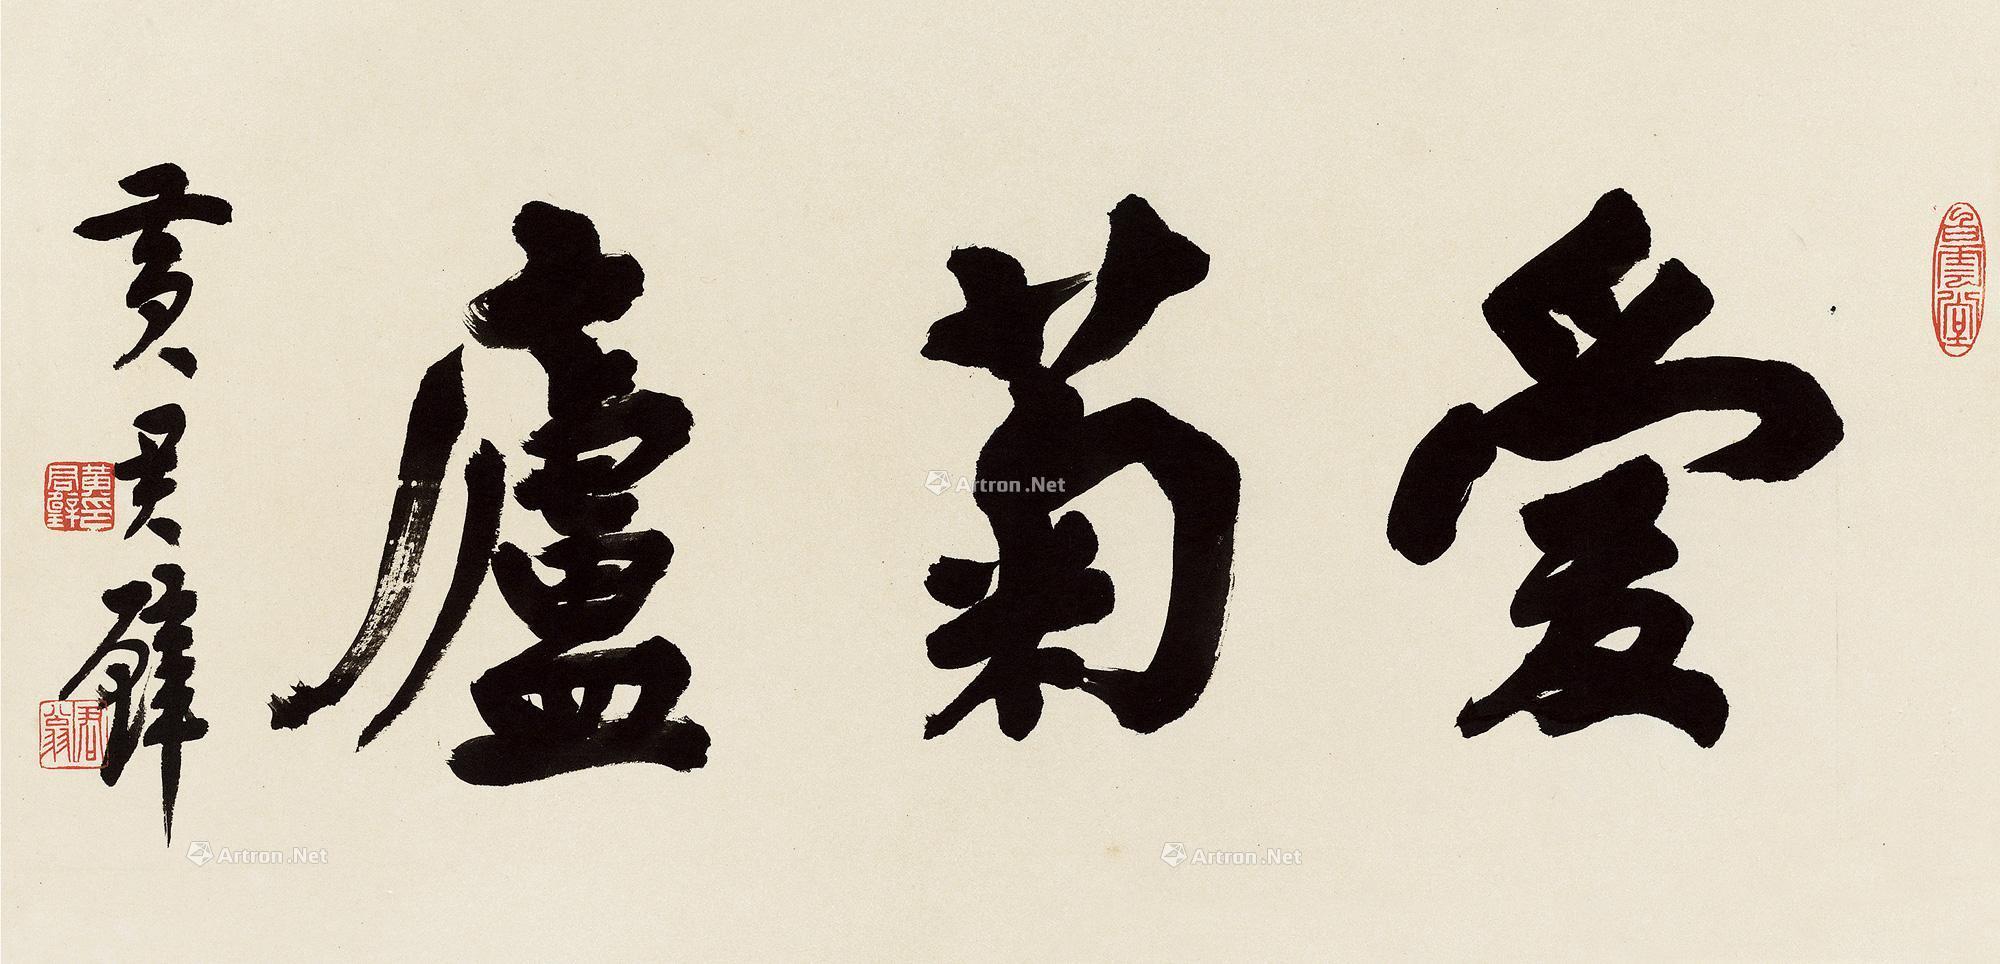 愛菊廬
黃君璧
白雲堂
黃君璧印
君翁
Artron.Net
Artron.Net
Artron.Net